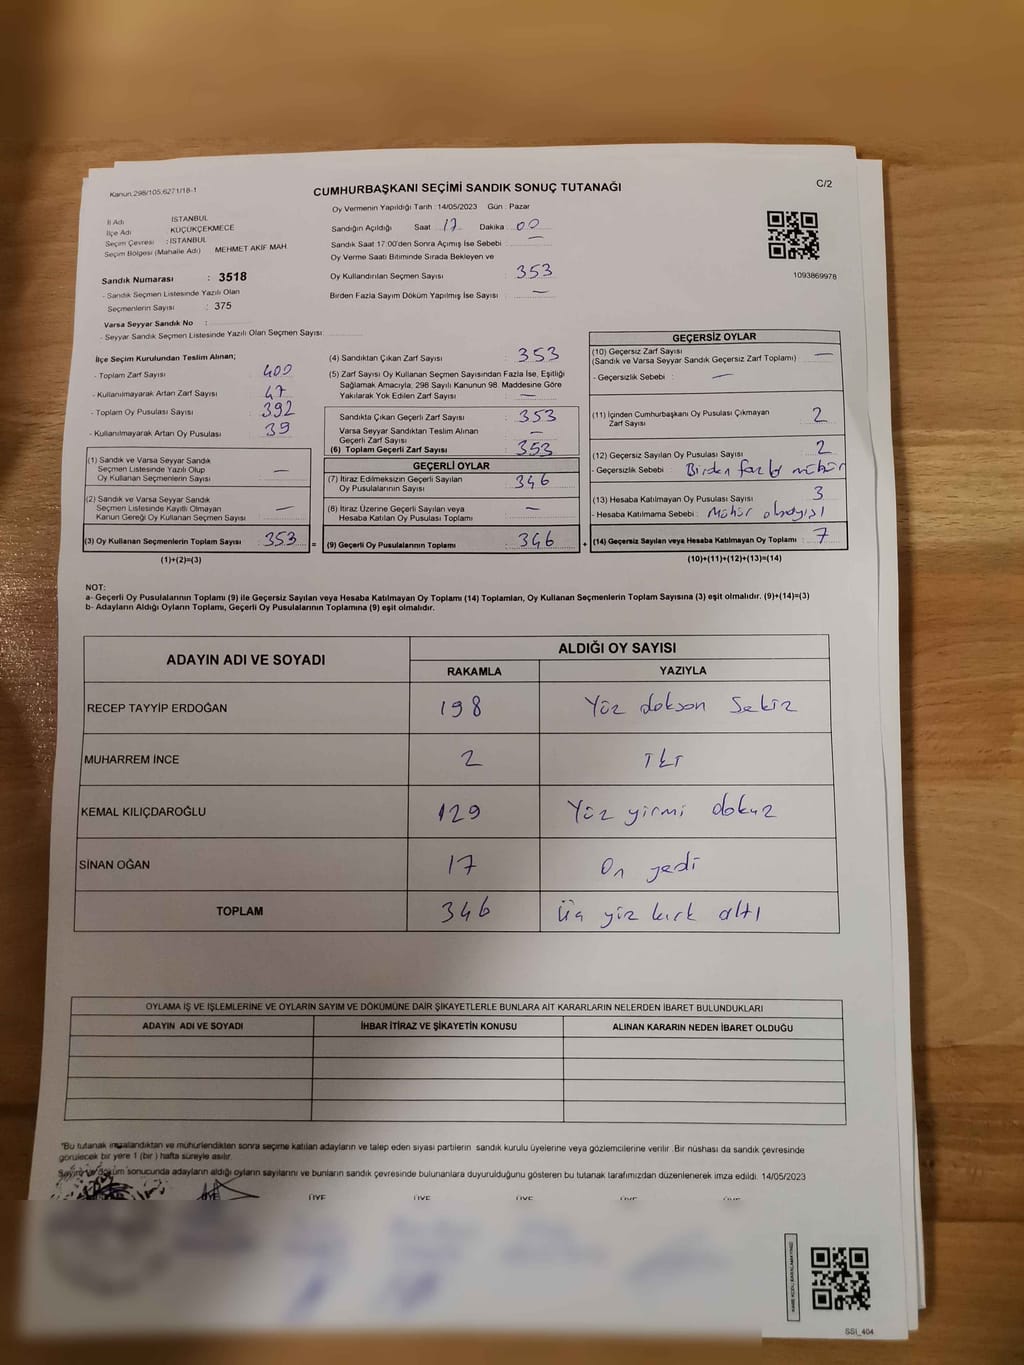 Kanun.298/105,6271/18-1
CUMHURBAŞKANI SEÇİMİ SANDIK SONUÇ TUTANAĞI
C/2
İl Adı İSTANBUL
İlçe Adı KÜÇÜKÇEKMECE
Seçim Çevresi : İSTANBUL
Seçim Bölgesi (Mahalle Adı) MEHMET AKİF MAH.
Sandık Numarası : 3518
- Sandık Seçmen Listesinde Yazılı Olan
Seçmenlerin Sayısı : 375
Varsa Seyyar Sandık No :
- Seyyar Sandık Seçmen Listesinde Yazılı Olan Seçmen Sayısı :
Oy Vermenin Yapıldığı Tarih : 14/05/2023 Gün : Pazar
Sandığın Açıldığı Saat 17 Dakika 00
Sandık Saat 17:00'den Sonra Açımış İse Sebebi : —
Oy Verme Saati Bitiminde Sırada Bekleyen ve
Oy Kullandırılan Seçmen Sayısı : 353
Birden Fazla Sayım Döküm Yapılmış İse Sayısı : —
1093869978
İlçe Seçim Kurulundan Teslim Alınan;
- Toplam Zarf Sayısı : 400
- Kullanılmayarak Artan Zarf Sayısı : 47
- Toplam Oy Pusulası Sayısı : 392
- Kullanılmayarak Artan Oy Pusulası : 39
(1) Sandık ve Varsa Seyyar Sandık
Seçmen Listesinde Yazılı Olup
Oy Kullanan Seçmenlerin Sayısı : —
(2) Sandık ve Varsa Seyyar Sandık
Seçmen Listesinde Kayıtlı Olmayan
Kanun Gereği Oy Kullanan Seçmen Sayısı : —
(3) Oy Kullanan Seçmenlerin Toplam Sayısı : 353 =
(1)+(2)=(3)
(4) Sandıktan Çıkan Zarf Sayısı : 353
(5) Zarf Sayısı Oy Kullanan Seçmen Sayısından Fazla İse, Eşitliği
Sağlamak Amacıyla, 298 Sayılı Kanunun 98. Maddesine Göre
Yakılarak Yok Edilen Zarf Sayısı : —
Sandıkta Çıkan Geçerli Zarf Sayısı : 353
Varsa Seyyar Sandıktan Teslim Alınan
Geçerli Zarf Sayısı : —
(6) Toplam Geçerli Zarf Sayısı : 353
GEÇERLİ OYLAR
(7) İtiraz Edilmeksizin Geçerli Sayılan
Oy Pusulalarının Sayısı : 346
(8) İtiraz Üzerine Geçerli Sayılan veya
Hesaba Katılan Oy Pusulası Toplamı : —
(9) Geçerli Oy Pusulalarının Toplamı : 346 +
GEÇERSİZ OYLAR
(10) Geçersiz Zarf Sayısı
(Sandık ve Varsa Seyyar Sandık Geçersiz Zarf Toplamı) : —
- Geçersizlik Sebebi : —
(11) İçinden Cumhurbaşkanı Oy Pusulası Çıkmayan
Zarf Sayısı : 2
(12) Geçersiz Sayılan Oy Pusulası Sayısı : 2
- Geçersizlik Sebebi : Birden fazla mühür
(13) Hesaba Katılmayan Oy Pusulası Sayısı : 3
- Hesaba Katılmama Sebebi : Mühür
(14) Geçersiz Sayılan veya Hesaba Katılmayan Oy Toplamı : 7
(10)+(11)+(12)+(13)=(14)
NOT:
a- Geçerli Oy Pusulalarının Toplamı (9) ile Geçersiz Sayılan veya Hesaba Katılmayan Oy Toplamı (14) Toplamları, Oy Kullanan Seçmenlerin Toplam Sayısına (3) eşit olmalıdır. (9)+(14)=(3)
b- Adayların Aldığı Oyların Toplamı, Geçerli Oy Pusulalarının Toplamına (9) eşit olmalıdır.
ADAYIN ADI VE SOYADI ALDIĞI OY SAYISI
RAKAMLA YAZIYLA
RECEP TAYYİP ERDOĞAN 198 Yüz dokson Sekiz
MUHARREM İNCE 2 İki
KEMAL KILIÇDAROĞLU 129 Yüz yirmi dokuz
SİNAN OĞAN 17 On yedi
TOPLAM 346 Üç yüz kırk altı
OYLAMA İŞ VE İŞLEMLERİNE VE OYLARIN SAYIM VE DÖKÜMÜNE DAİR ŞİKAYETLERLE BUNLARA AİT KARARLARIN NELERDEN İBARET BULUNDUKLARI
ADAYIN ADI VE SOYADI İHBAR İTİRAZ VE ŞİKAYETİN KONUSU ALINAN KARARIN NEDEN İBARET OLDUĞU
*Bu tutanak imzalandıktan ve mühürlendikten sonra seçime katılan adayların ve talep eden siyasi partilerin sandık kurulu üyelerine veya gözlemcilerine verilir. Bir nüshası da sandık çevresinde
görülecek bir yere 1 (bir ) hafta süreyle asılır.
Sayım ve döküm sonucunda adayların aldığı oyların sayılarını ve bunların sandık çevresinde bulunanlara duyurulduğunu gösteren bu tutanak tarafımızdan düzenlenerek imza edildi. 14/05/2023
ÜYE ÜYE ÜYE ÜYE ÜYE
SSİ_404